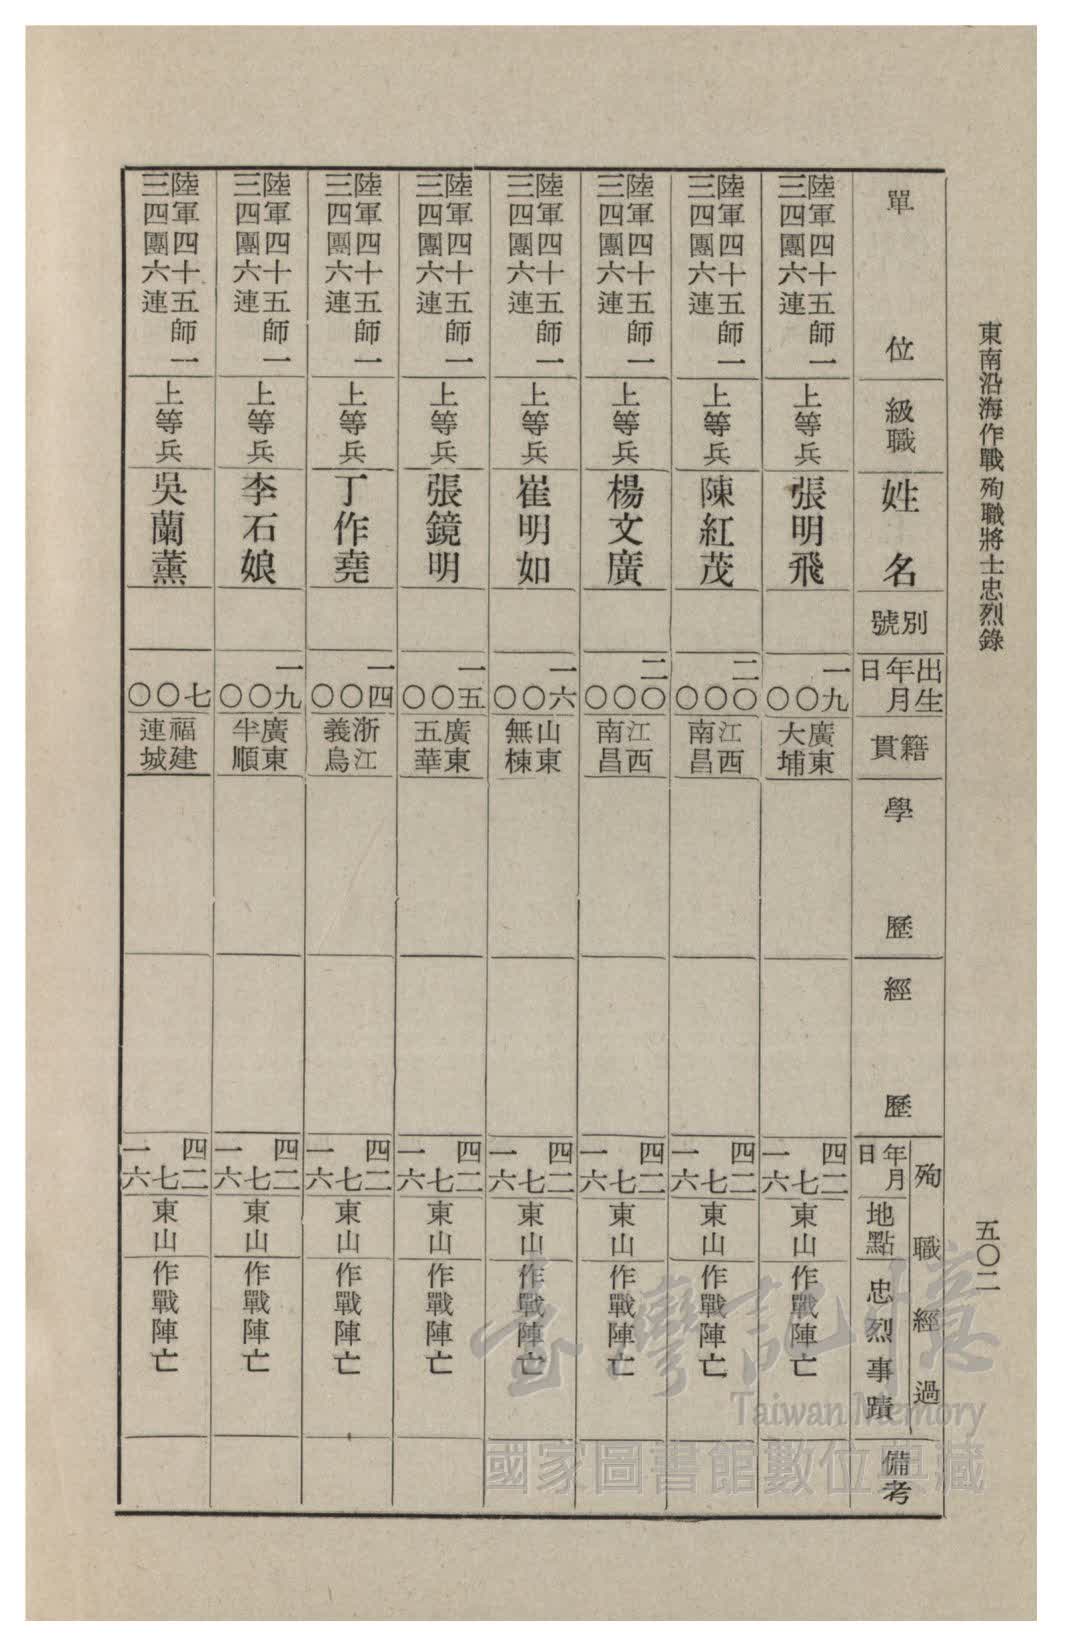 東南沿海作戰殉職將士忠烈錄
五〇二
單位
級職
姓名
別號
出生年月日
籍貫
學歷
經歷
殉職經過
年月日
地點
忠烈事蹟
備考
陸軍四十五師一三四團六連
上等兵
張明飛
一九〇〇
廣東大埔
四二七一六
東山
作戰陣亡
陸軍四十五師一三四團六連
上等兵
陳紅茂
二〇〇〇
江西南昌
四二七一六
東山
作戰陣亡
陸軍四十五師一三四團六連
上等兵
楊文廣
二〇〇〇
江西南昌
四二七一六
東山
作戰陣亡
陸軍四十五師一三四團六連
上等兵
崔明如
一六〇〇
山東無棟
四二七一六
東山
作戰陣亡
陸軍四十五師一三四團六連
上等兵
張鏡明
一五〇〇
廣東五華
四二七一六
東山
作戰陣亡
陸軍四十五師一三四團六連
上等兵
丁作堯
一四〇〇
浙江義烏
四二七一六
東山
作戰陣亡
陸軍四十五師一三四團六連
上等兵
李石娘
一九〇〇
廣東半順
四二七一六
東山
作戰陣亡
陸軍四十五師一三四團六連
上等兵
吳蘭薰
七〇〇
福建連城
四二七一六
東山
作戰陣亡
臺灣記憶
Taiwan Memory
國家圖書館數位典藏